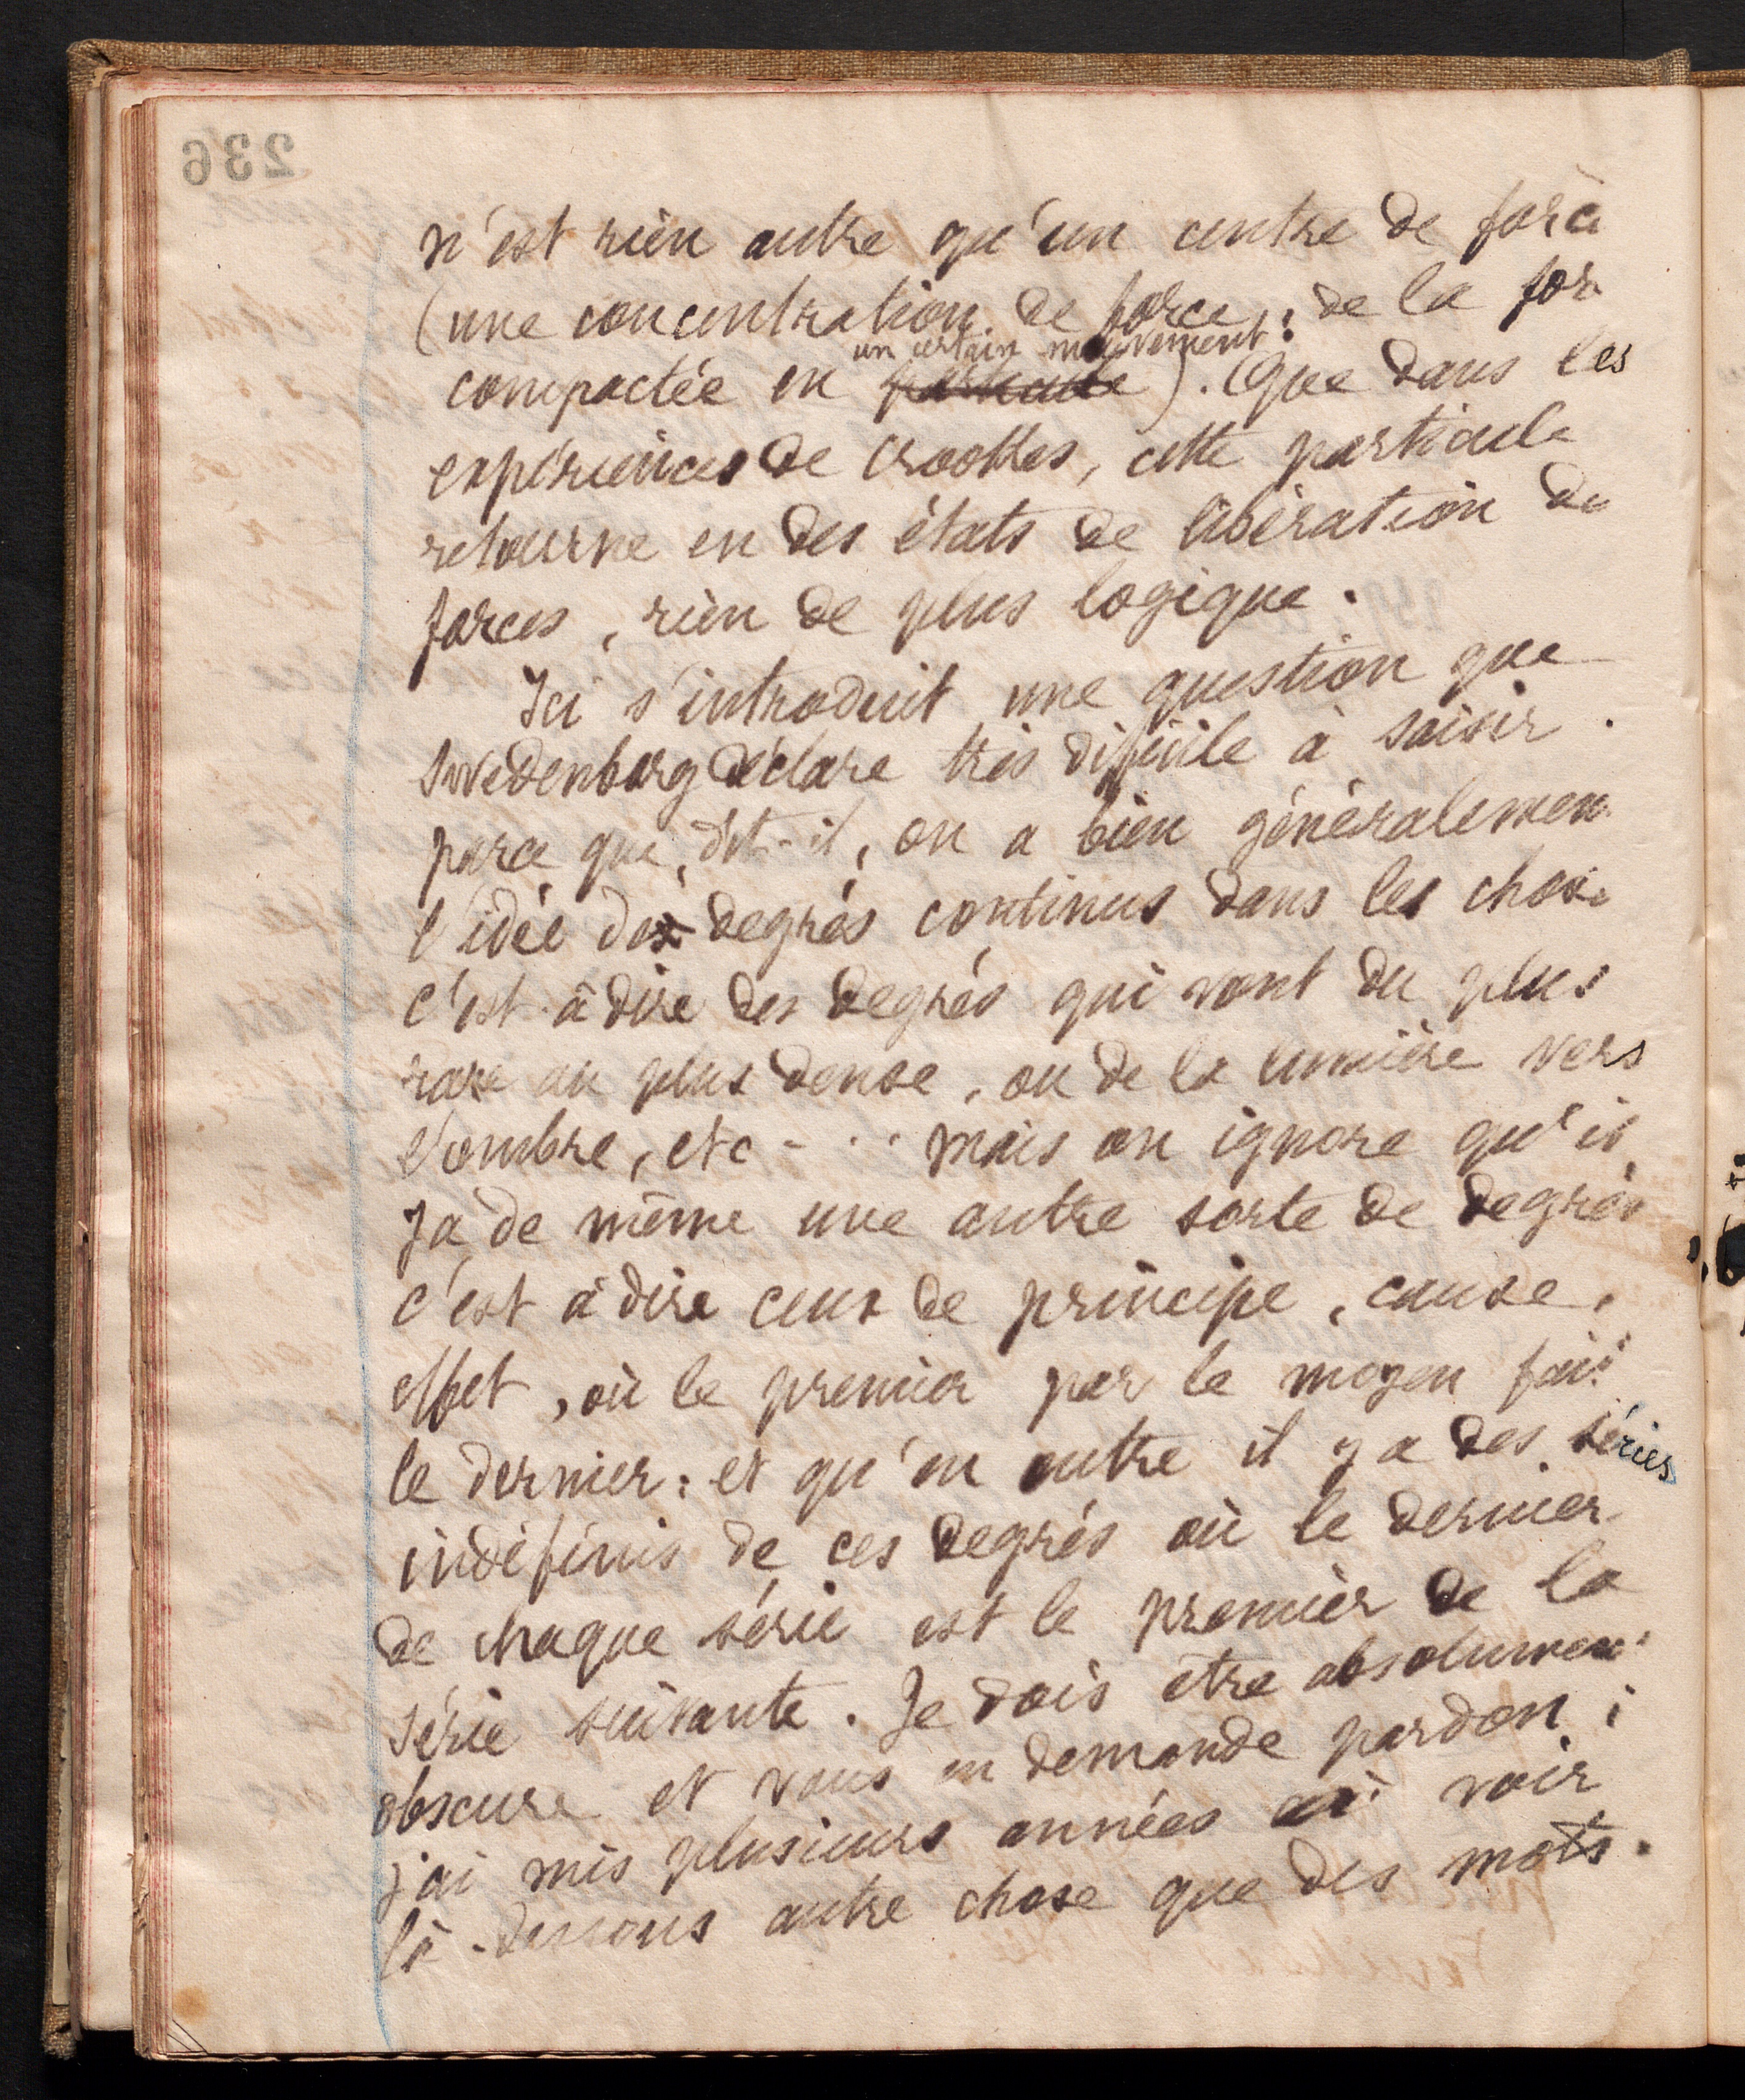 236
n'est rien autre qu'un centre de force
(une concentration de force ; de la for
un certain mouvement
compactée en particule). Que dans les
expériences de Crookes, cette particule
retourne en des états de libération de
forces, rien de plus logique.
Ici s'introduit une question que
Swedenborg déclare très difficile à saisir.
parce que, dit-il, on a bien généralemen
l'idée des degrés continus dans les chose
c'est-à dire des degrés qui vont du plus
rare au plus dense, ou de la lumière vers
l'ombre, etc - .. mais on ignore qu'il
y a de même une autre sorte de degrés
c'est à dire ceux de principe, cause,
effet, où le premier par le moyen fait
le dernier : et qu'en outre il y a des séries
indéfinis de ces degrés où le dernier
de chaque série est le premier de la
série suivante. Je dois être absolument
obscure et vous en demande pardon ;
j'ai mis plusieurs années à voir
là-dessous autre chose que des mots.